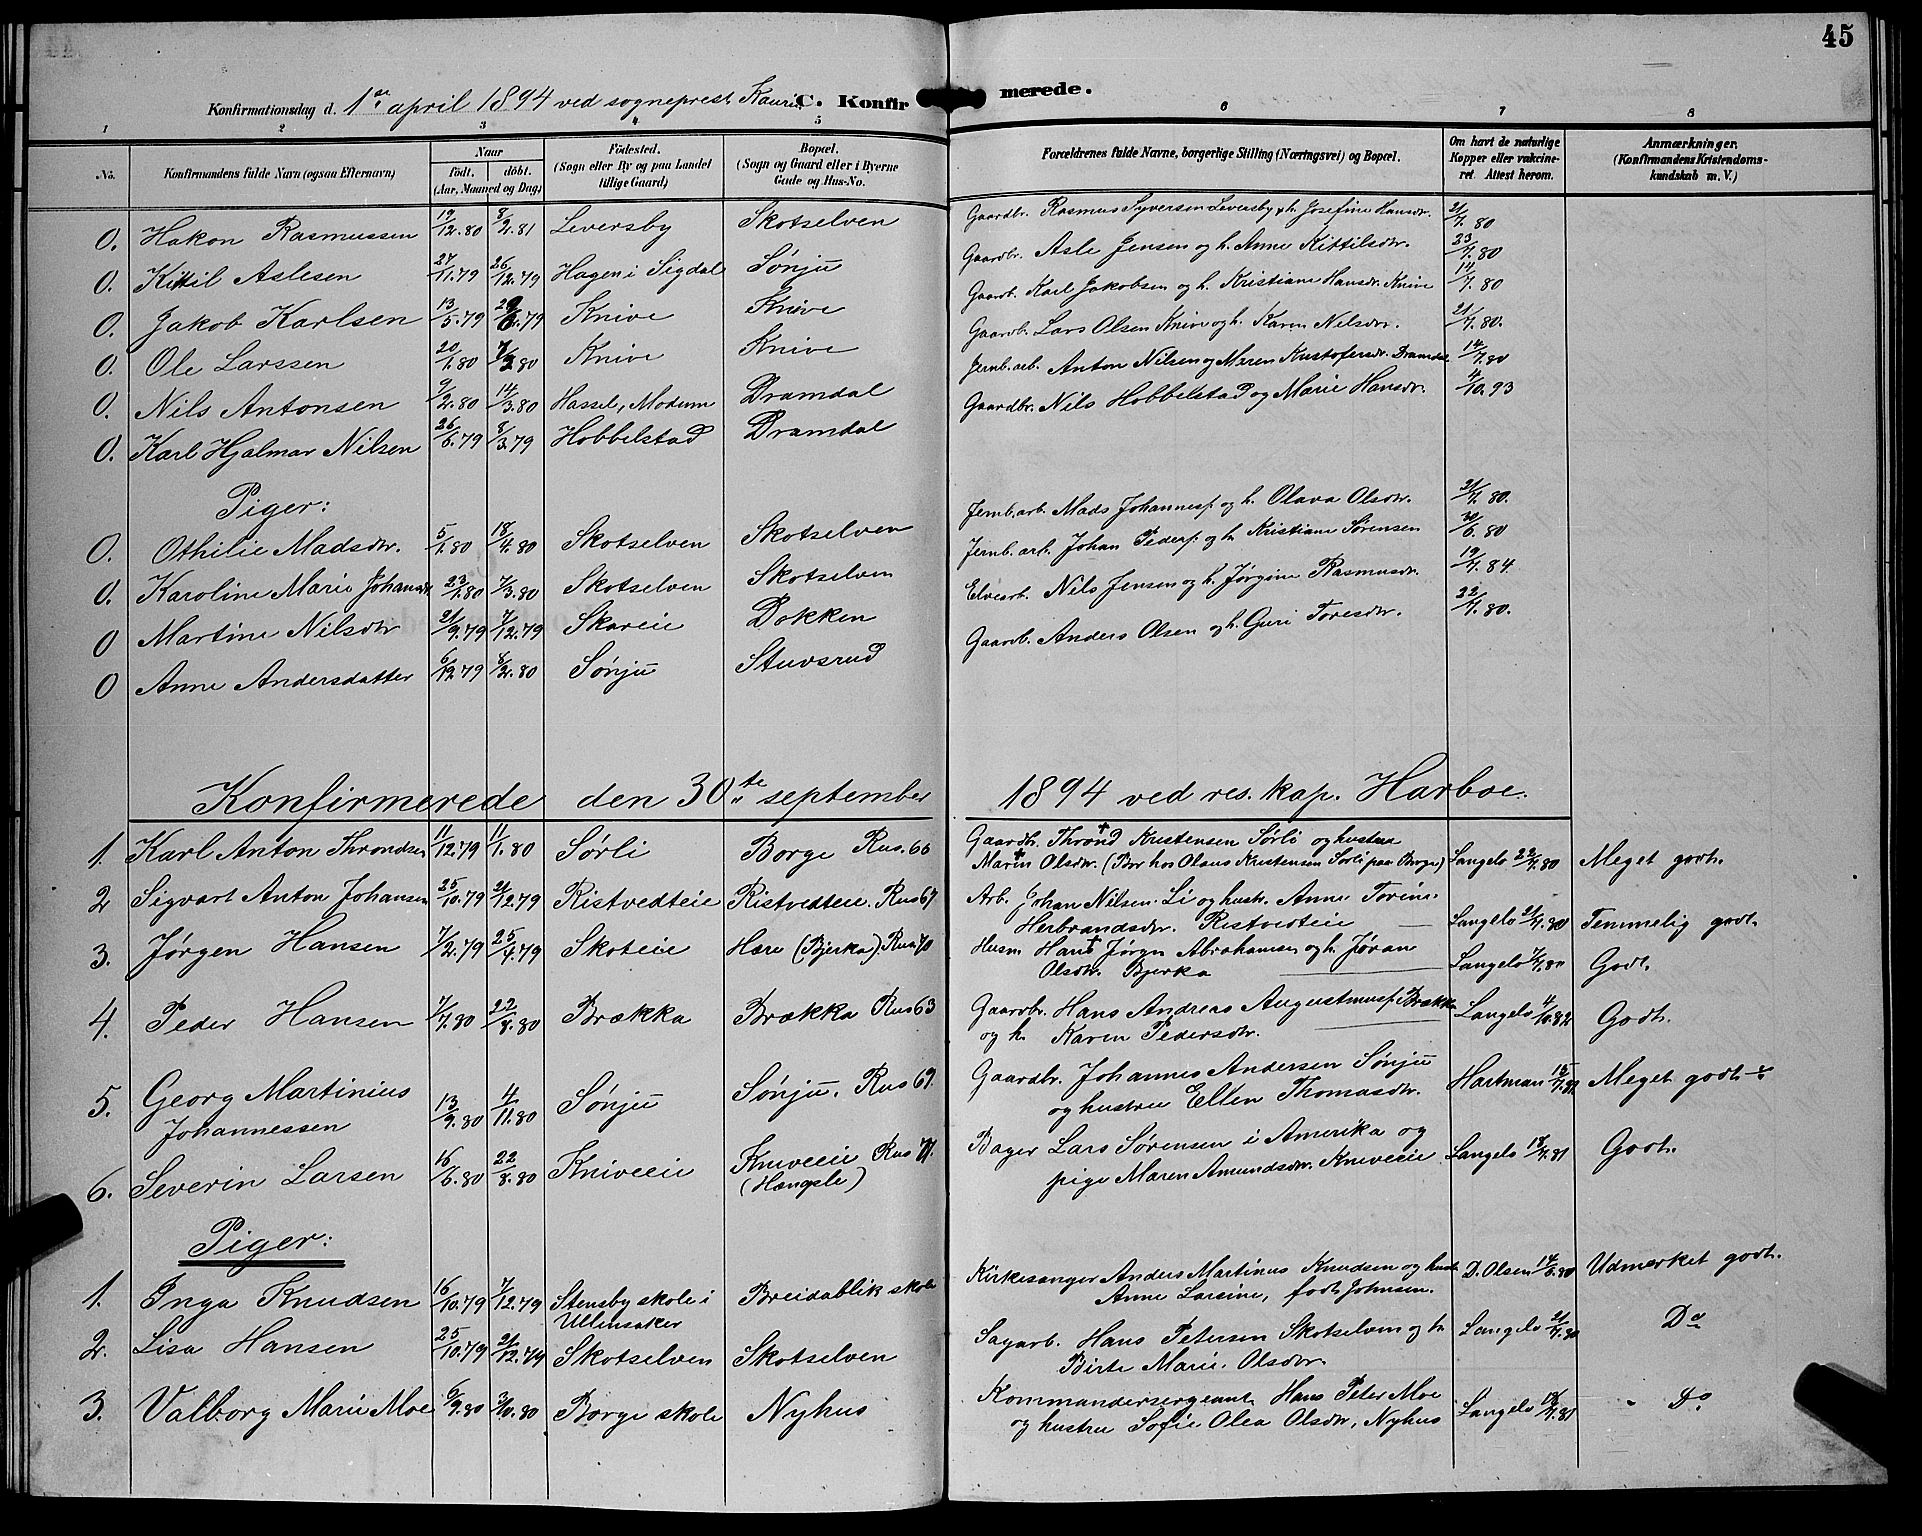 45
Konfirmationsdag d. 1ste april 1894 ved sogneprest Kaurin. C. Konfirmerede.
1 2 3 4 5 6 7 8
No. Konfirmandens fulde Navn (ogsaa Efternavn) Naar födt. döbt. (Aar, Maaned og Dag) Födested. (Sogn eller By og paa Landet tillige Gaard) Bopæl. (Sogn og Gaard eller i Byerne Gade og Hus-No. Forældrenes fulde Navne, borgerlige Stilling (Næringsvei) og Bopæl. Om havt de naturlige Kopper eller vakcineret. Attest herom. Anmærkninger. (Konfirmandens Kristendomskundskab m. V.)
0. Hakon Rasmussen 19/12.80 8/2.81 Leversby Skotselven Gaardbr. Rasmus Syversen Leversby o h. Josefine Hansdr. 21/7.80
0. Kittil Aslesen 27/11.79 26/12.79 Hagen i Sigdal Sønju Gaardbr. Asle Jensen og h. Anne Kittilsdr. 23/7.80
0. Jakob Karlsen 13/5.79 29/6.79 Knive Knive Gaardb. Karl Jakobsen og h. Kristiane Hansdr. Knive 14/7.80
0. Ole Larssen 20/1.80 7/3.80 Knive Knive Gaardb. Lars Olsen Knive og h. Karen Nilsdr. 21/7.80.
0. Nils Antonsen 9/2.80 14/3.80 Hassel, Modum Dramdal Jernb. arb. Anton Nilsen og Meren Kristofersdr. Dramdal 14/7.80
0. Karl Hjalmar Nilsen 26/6.79 8/3.79 Hobbelstad Dramdal Gaardbr. Nils Hobbelstad og Marie Hansdr. 4/10.93
Piger:
0. Othilie Madsdtr. 5/1.80 18/4.80 Skotselven Skotselven Jernb. arb. Mads Johannesf. og h. Olava Olsdtr. 21/7.80.
0. Karoline Marie Johansdr. 23/1.80 7/3.80 Skotselven Skotselven Jernb. arb. Johan Pedersf. og h. Kristiane Sørensen 30/6.80
0 Martine Nilsdtr 21/9.79 7/12.79 Skareie Dokken Elvearb. Nils Jensen og h. Jørgine Rasmusdr. 19/7.84
0 Anne Andersdatter 6/12.79 8/2.80 Sønju Stuvsrud Gaardb. Anders Olsen og h. Guri Toresdtr. 22/7.80.
Konfirmerede den 30te september 1894 ved res. kap. Harboe.
1. Karl Anton Throndsen 11/12.79 11/1.80 Sørli Borge Rus. 66 Gaardbr. Thrond † Kristensen Sørli og hustru
Marin † Olsdtr. (Bor hos Olaus Kristensen Sørli paa Borge) Langelo 22/7.80 Meget godt.
2 Sigvart Anton Johansen 25/10.79 21/12.79 Ristvedteie Ristvedteie. Rus 67 Arb. Johan Nilsen Li og hustr. Anne Torine
Herbrandsdtr. Ristvedteie Langelo 21/7.80 Temmelig godt.
3. Jørgen Hansen 7/2.79 25/4.79 Skoteie Hære (Bjerka). Rus 70 Husm. Hans † Jørgen Abrahamsen og h. Jøran
Olsdtr. Bjerka Langelo Godt.
4. Peder Hansen 7/7.80 22/8.80 Brækka Brækka Rus 63 Gaardbr. Hans Andreas Augustinusf. Brække
og h. Karen Pedersdtr. Langelo 4/10.82 Godt.
5. Georg Martinius
Johannessen 13/9.80 4/11.80 Sønju Sønju. Rus 69. Gaardbr. Johannes Andersen Sønju
og hustru Ellen Thomasdtr. Hartman Meget godt ÷
6. Severin Larsen 16/6.80 22/8.80 Kniveeie Kniveeie Rus 71.
(Hængsle) Bager Lars Sørensen i Amerika og
pige Maren Amundsdtr. Kniveeie Langelo 18/7.81 Godt.
Piger:
1. Inga Knudsen 16/10.79 7/12.79 Stensby skole i
Ullensaker Breidablik skole Kirkesanger Anders Martinus Knudsen og hustr.
Anne Larsine, født Johnsen. D. Olsen 14/6.80 Udmerket godt.
2. Lisa Hansen 25/10.79 21/12.79 Skotselven Skotselven Sagarb. Hans Petersen Skotselven og h.
Birte Marie Olsdtr. Langelo 21/7.80 Do
3. Valborg Marie Moe 6/9.80 3/10.80 Borge skole Nyhus Kommandersergeant Hans Peter Moe
og hustru Sofie Olea Olsdtr, Nyhus Langelo 18/7.81 " Do